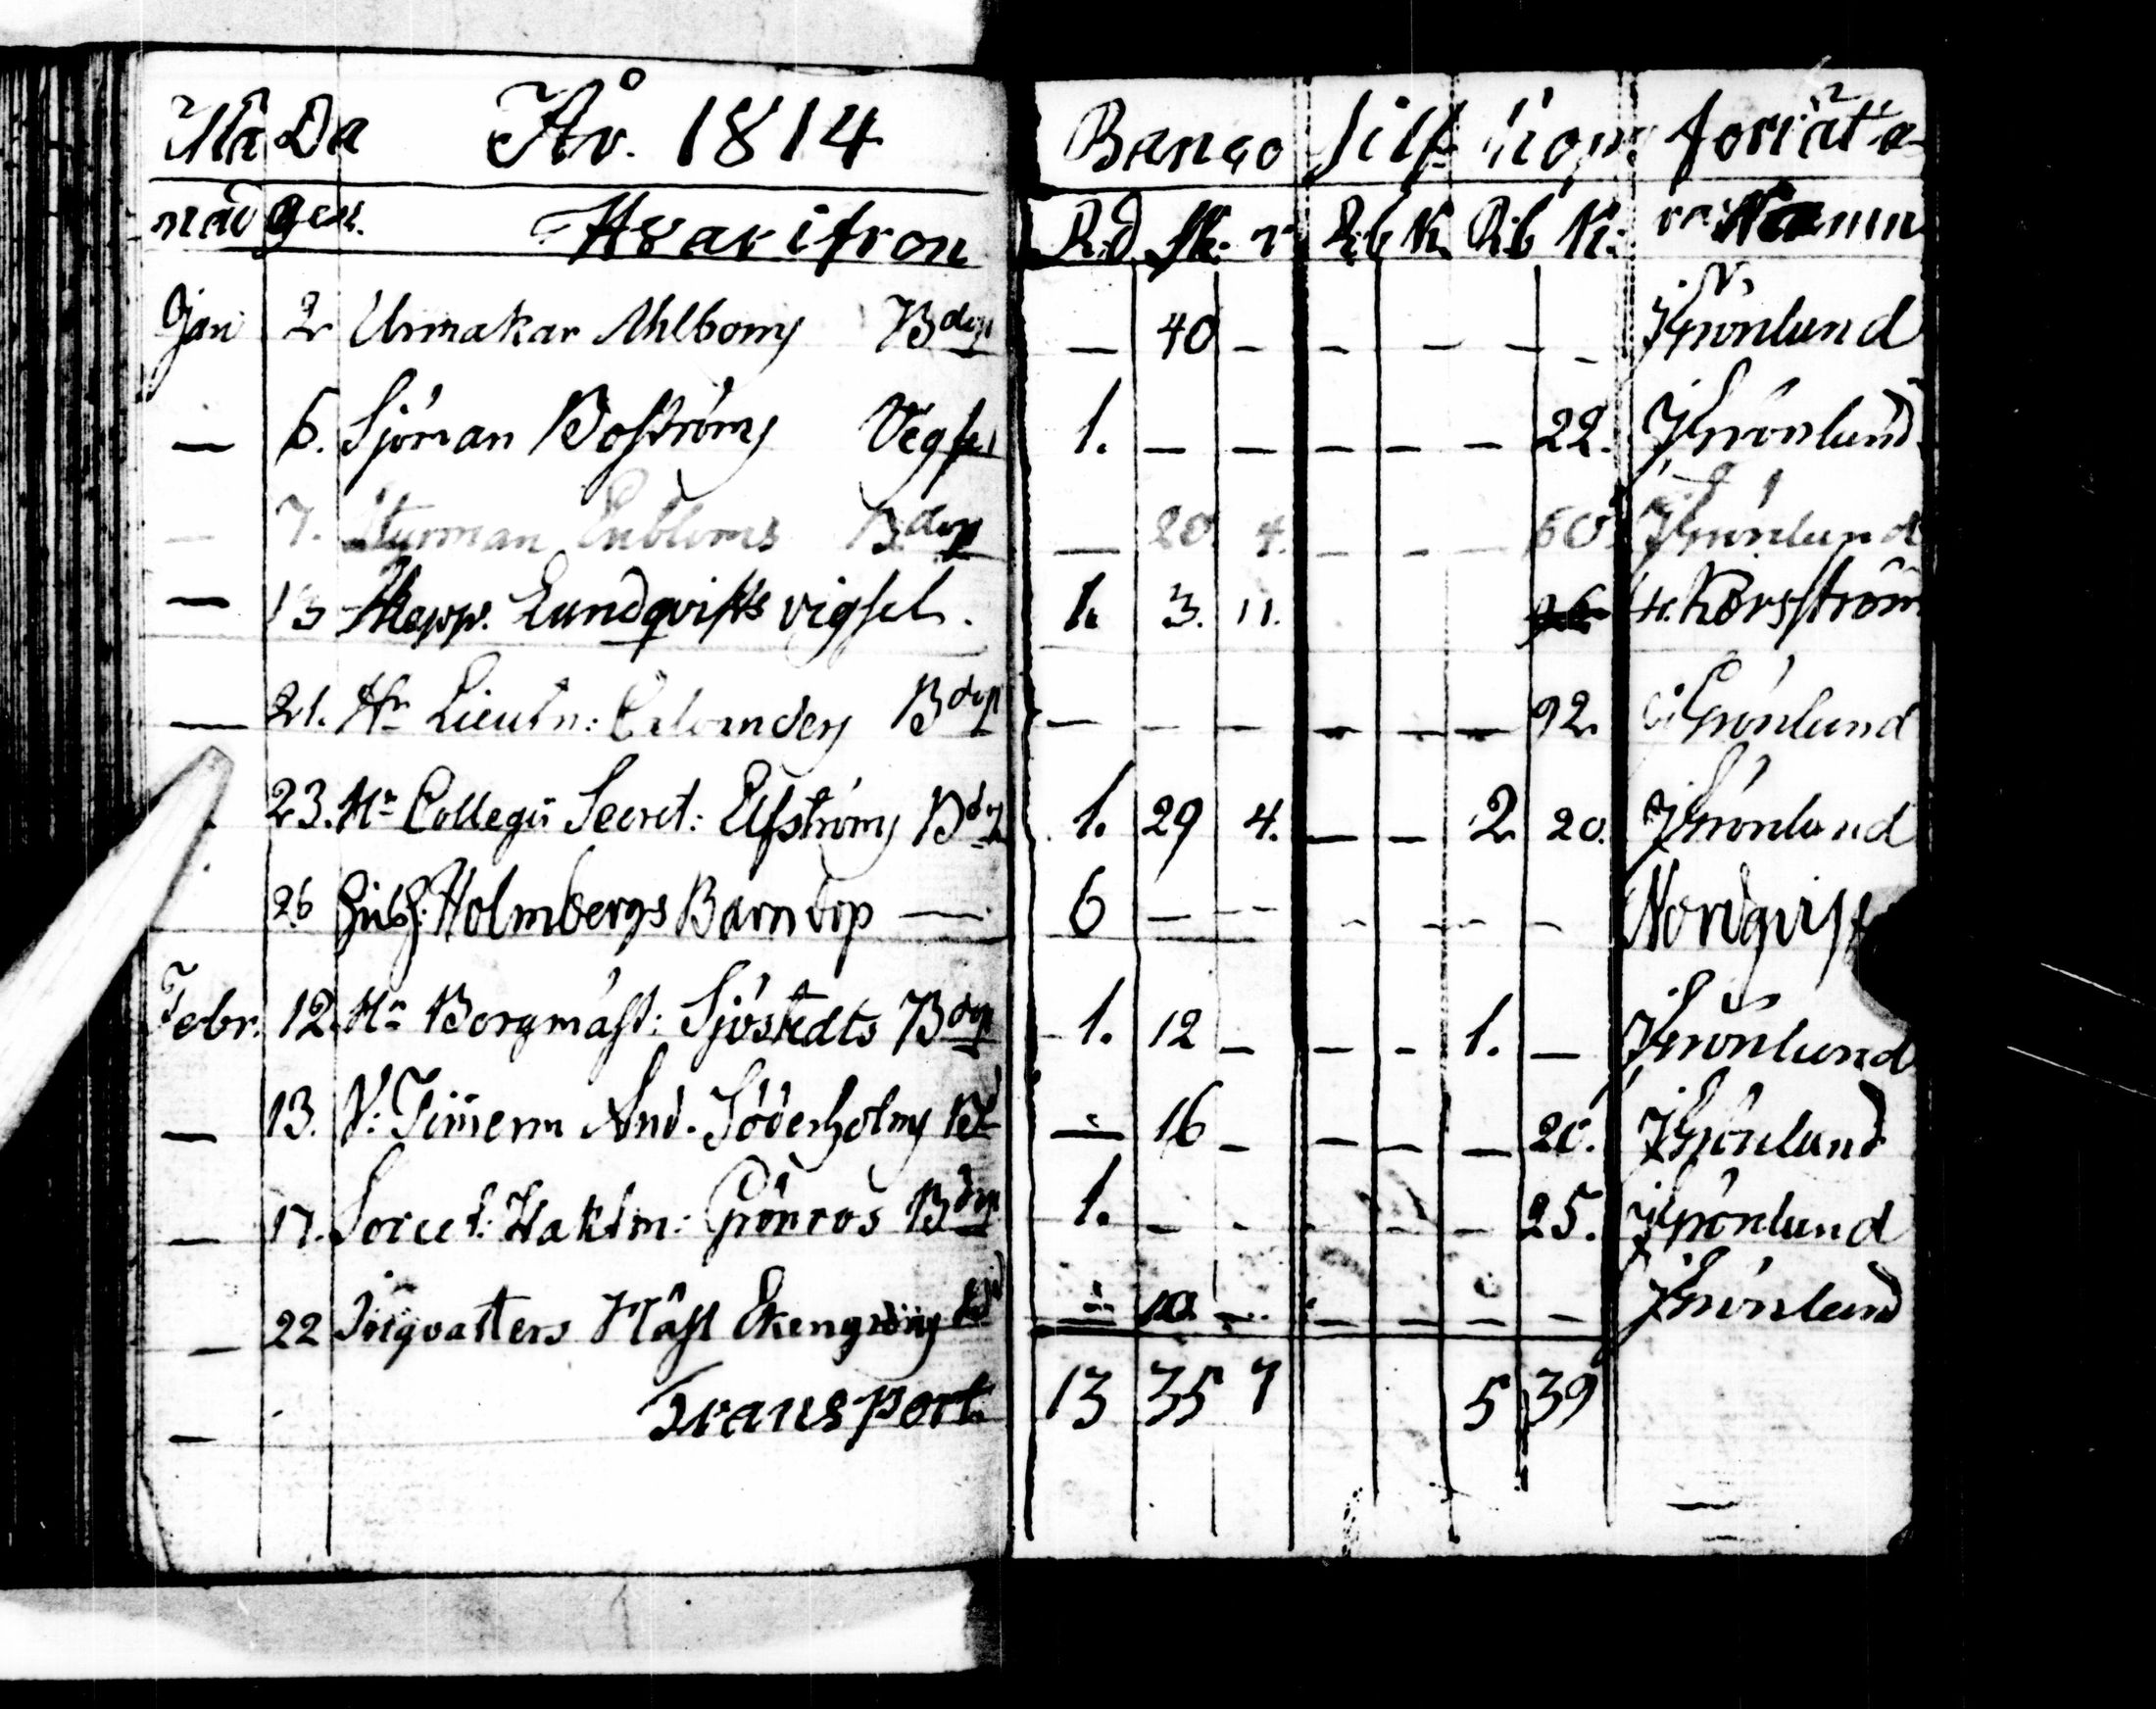 Må Da År. 1814 Banco Silf Kop: föräta
nad gen. Hvarifron Rd sk. r Rb K Rb K: Namn
Jan 2 Urmakar Ahlboms Bdop — 40 — — — — — J Grönlund
— 6. Sjöman Boströms Vegsel 1. — — — — — 22. J Grönlund
— 7. Styrman Enbloms Bdop — 20. 4. — — — 60. J Grönlund
— 13 Skepp. Lundqvists vigsel. 1. 3. 11. H. Korsström
— 21. Hr Lieutn: Bdop — — — — — — 92. J Grönlund
23. Hr Collegii Secret: Elfströms Bdop 1. 29 4. — — 2 20. J Grönlund
26 Holmbergs Barndop — 6 — — — — — Nordqvist
Febr. 12. Hr Borgmäst: Sjöstedts Bdop 1. 12 — — — 1. — J Grönlund
— 13. V: Timerm And. Söderholms Bd — 16 — — — — 20. J Grönlund
— 17. Secret: Vaktm: Grönroos Bdop 1. — — — — — 25. J Grönlund
— 22 Mäst Ekengrens — 10 — — — — — J Grönlund
— Transport 13 35 7 5 39